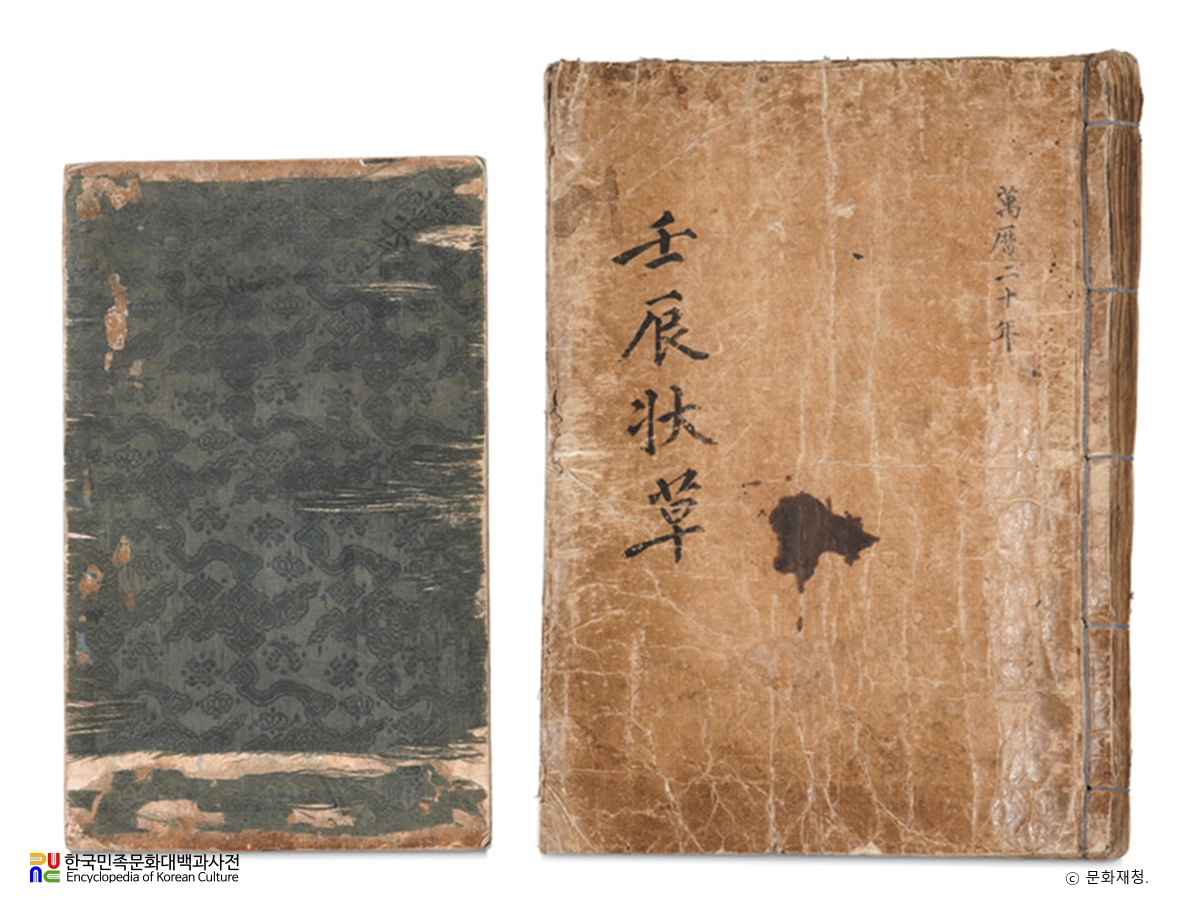 萬曆二十年
壬辰狀草
한국민족문화대백과사전
Encyclopedia of Korean Culture
ⓒ 문화재청.